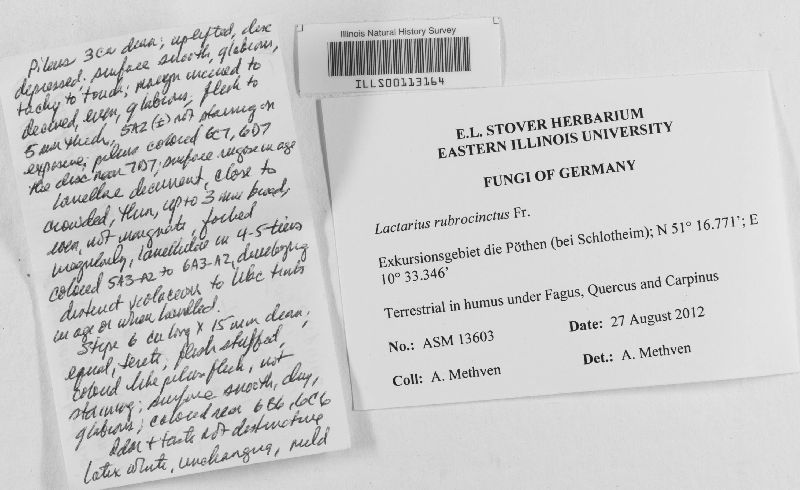 Pileus 3 cm diam; uplifted, disc
depressed; surface smooth, glabrous,
tacky to touch; margin incurved to
decurved, even, glabrous. flesh to
5 mm thick, 5A2 (±) not staining on
exposure; pileus colored 6C7, 6D7
the disc near 7D7; surface rugose in age
Lamellae decurrent, close to
crowded, thin, up to 3 mm broad,
even, not marginate, forked
irregularly, lamellulae in 4-5 tiers
colored 5A3-A2 to 6A3-A2, developing
distinct violaceous to lilac tints
in age or when handled.
Stipe 6 cm long x 15 mm diam;
equal, terete, flesh stuffed,
colored like pileus flesh, not
staining; surface smooth, dry,
glabrous; colored near 6B6, 6C6
Odor + taste not distinctive
Latex white, unchanging, mild
Illinois Natural History Survey
ILLS00113164
E.L. STOVER HERBARIUM
EASTERN ILLINOIS UNIVERSITY
FUNGI OF GERMANY
Lactarius rubrocinctus Fr.
Exkursionsgebiet die Pöthen (bei Schlotheim); N 51° 16.771'; E
10° 33.346'
Terrestrial in humus under Fagus, Quercus and Carpinus
No.: ASM 13603 Date: 27 August 2012
Coll: A. Methven Det.: A. Methven